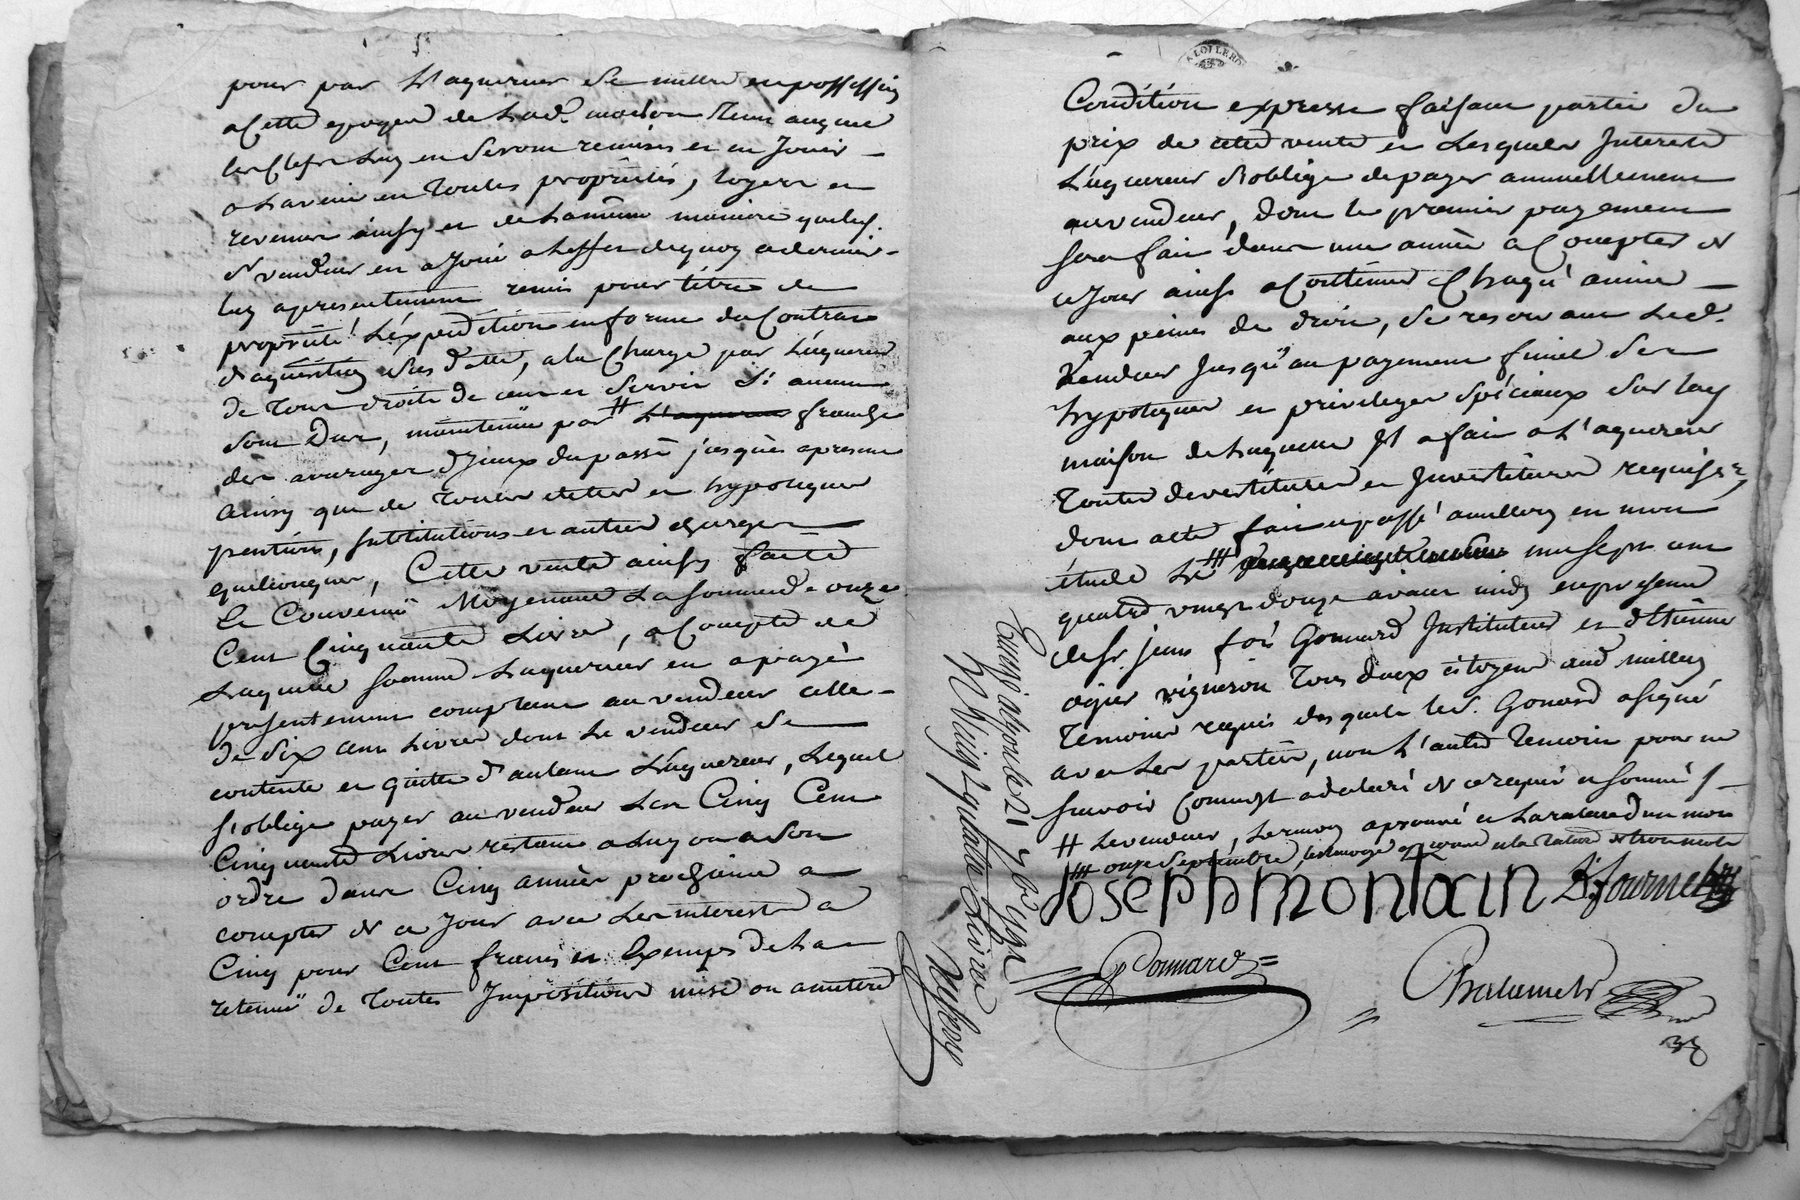 pour par L'aquereur se mettre en possession
a Cette epoque de Lad.e maison Tenir auquel
les Clefs Luy en Seront remises et en Jouir
a Lavenir en Toutes proprietés, loyers et
revenus ainsy et de La même maniere que led.
Vendeur en a Joui a Leffet de quoy ce dernier
luy a presentement remis pour titre de
propriété L'expedition en forme du Contrat
d'aquisition, a la Charge par L'aquereur
de Tous droits de cens et Servis S'i aucuns
Sont Dus, maintenüe par # L'aquereur franche
des arrerages d'Iceux du passé jusques a present
Ainsy que de Toutes dettes et hypoteques
pentions, substitutions et autres charges
quelconques, Cette vente ainsy faite
Et Convenüe Moyennant La somme de onze
Cent Cinquante Livres, a Compte de
Laquelle somme L'aquereur en a payé
presentement comptant au vendeur celle
de Six cent Livres dont Le vendeur se
contente et quitte d'autant L'aquereur, Lequel
s'oblige payer au vendeur Les Cinq Cent
Cinquante Livres restants a Luy ou a Son
ordre dans Cinq années prochaine a
compter de ce Jour avec Les interest a
Cinq pour Cent francs et Exempts de La
retenüe de Toutes Impositions mise ou a mettre
Condition expresse faisant partie du
prix de cette vente et Lesquels Interets
L'aquereur S'oblige de payer annuellement
au vendeur, dont le premier payement
sera fait dans une année a Compter de
ce Jour ainsi a Continuer Chaqu'année
aux peines de droit, Se reservant Led.
Vendeur Jusqu'au payement finiel Ses
hypoteques et privileges Spéciaux Sur lad.
maison de Laquelle Il a fait a L'aquereur
Toutes devestitures et Investitures requises,
dont acte fait et passé a millery en mon
étude Le #
quatre vingt douze avant midy en presence
de Sr. jean fois Gonnard Instituteur et d'Etienne
ogier vigneron Tous deux citoyens aud. millery
Temoins requis desquels led. Gonard a signé
avec Les parties, non L'autre Temoin pour ne
Savoir Comme Il a déclaré de ce requis et sommé
# Le vendeur, Le renvoy aprouvé et La rature d'un mot
onze Septembre
Joseph montain Fournel
Gonnard
Chalamel